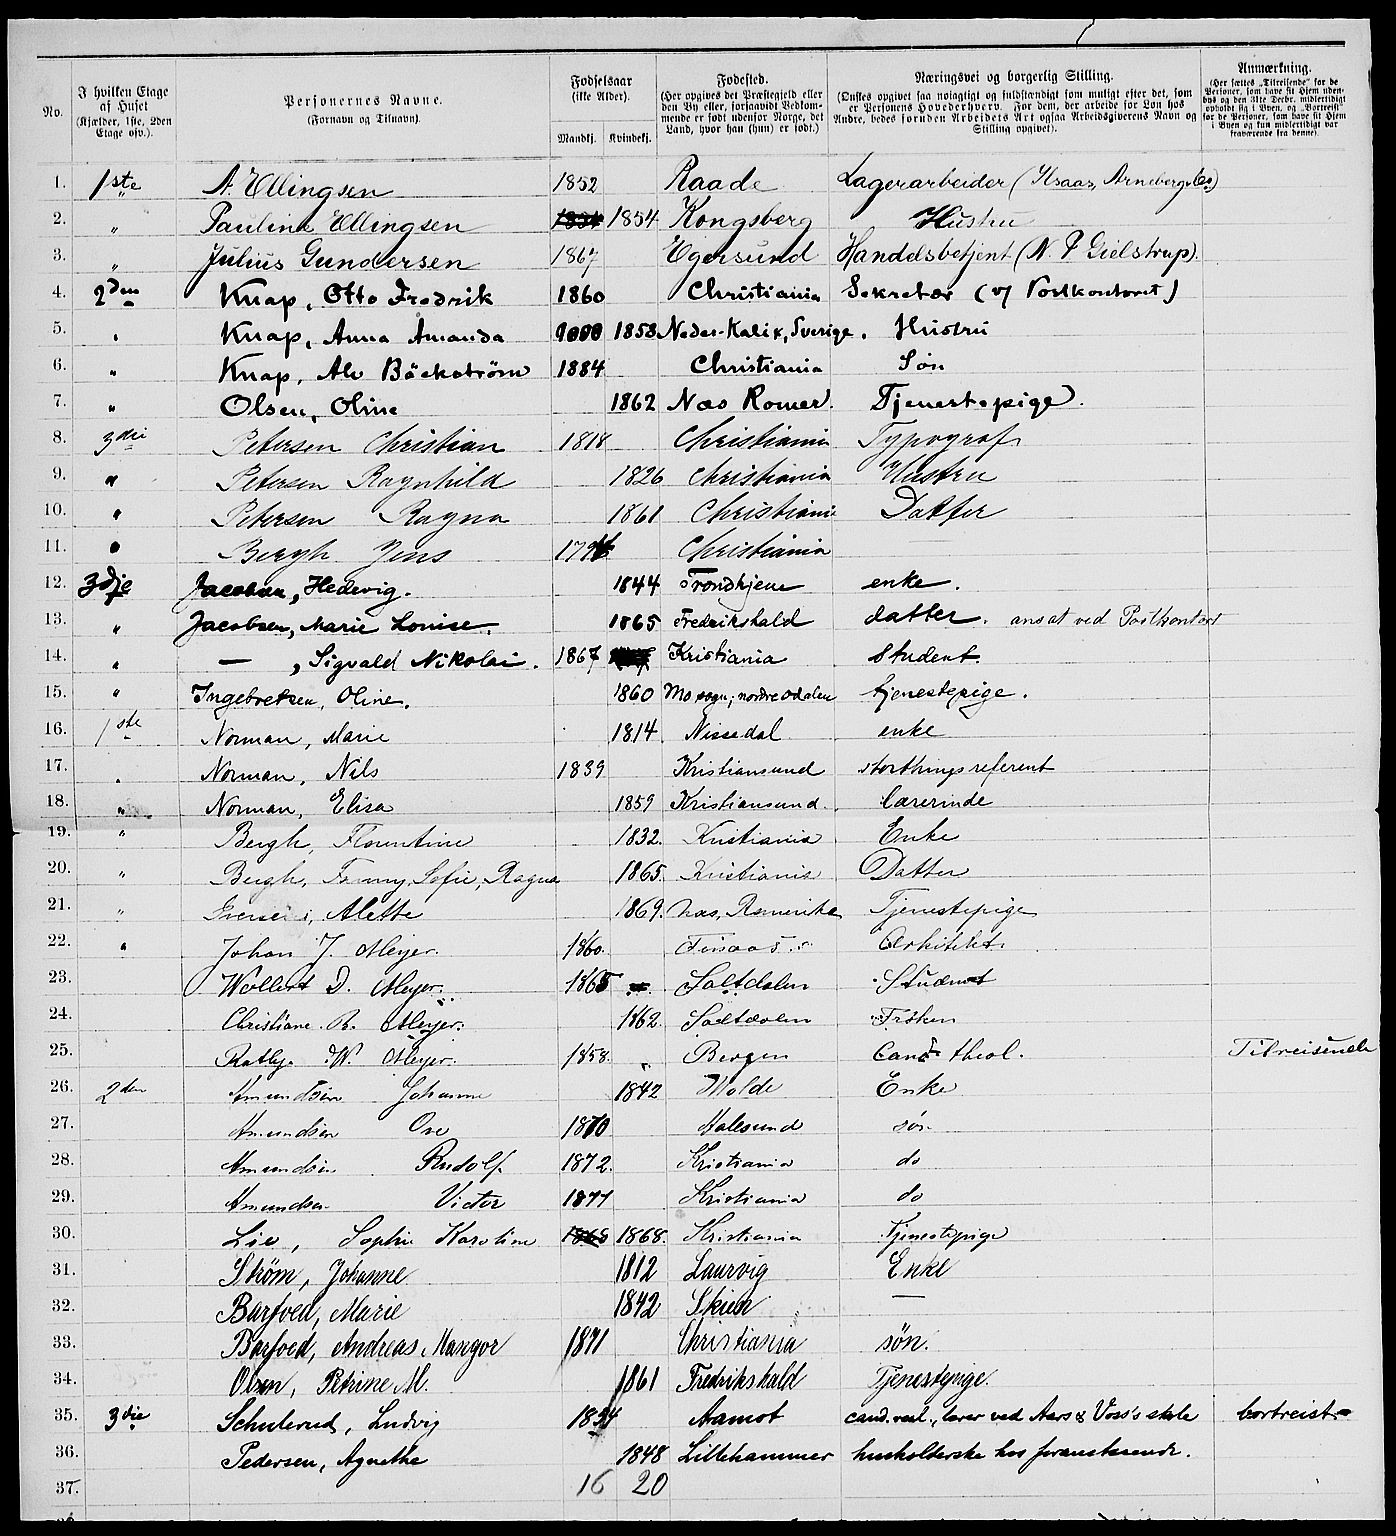 No. | I hvilken Etage af Huset (Kjælder, 1ste, 2den Etage osv.). | Personernes Navne. (Fornavn og Tilnavn). | Fødselsaar (ikke Alder). Mandkj. | Kvindekj. | Fødested. (Her opgives det Præstegjeld eller den By eller, forsaavidt Vedkommende er født udenfor Norge, det Land, hvor han (hun) er født.) | Næringsvei og borgerlig Stilling. (Ønskes opgivet saa nøiagtigt og fuldstændigt som muligt efter det, som er Personens Hovederhverv. For dem, der arbeide for Løn hos Andre, bedes foruden Arbeidets Art ogsaa Arbeidsgiverens Navn og Stilling opgivet). | Anmærkning. (Her sættes „Tilreisende" for de Personer, som have sit Hjem udenbys og den 31te Decbr. midlertidigt opholdt sig i Byen, og „Bortreist" for de Personer, som have sit Hjem i Byen og kun midlertidigt var fraværende fra denne).
1. 1ste A. Ellingsen 1852 Raade Lagerarbeider (Isaas, Arneberg & Co)
2. " Pauline Ellingsen 1854 Kongsberg Hustru
3. " Julius Gundersen 1867 Egersund Handelsbetjent (N. P Gielstrup).
4. 2den Knap, Otto Fredrik 1860 Christiania Sekretær (v/ Postkontoret)
5. " Knap, Anna Amanda 1858 Neder-Kalix, Sverige. Hustru
6. " Knap, Alv Bäckström 1884 Christiania Søn
7. " Olsen, Oline 1862 Næs Romer. Tjenestepige.
8. 3die Petersen Christian 1818 Christiania Typograf
9. " Petersen Ragnhild 1826 Christiania Hustru
10. " Petersen Ragna 1861 Christiania Datter
11. " Bergh Jens Christiania
12. 3dje Jacobsen, Hedevig. 1844 Trondhjem enke.
13. " Jacobsen, Marie Louise. 1865 Fredrikshald datter. ansat ved Postkontort
14. " — , Sigvald Nikolai. 1867 Kristiania student.
15. " Ingebretsen, Oline. 1860 Mo sogn; nordre odalen tjenestepige.
16. 1ste Norman, Marie 1814 Nissedal enke
17. " Norman, Nils 1839 Kristiansund storthingsreferent
18. " Norman, Elisa 1859 Kristiansund. lærerinde
19. " Bergh, Florentine 1832. Kristiania Enke
20. " Bergh, Fanny, Sofie, Ragna 1865. Kristiania Datter
21. " Alette 1869. Næs, Romerike Tjenestepige
22. " Johan J. Meyer. 1860. Arkitekt.
23. Wollert D. Meyer. 1865 Saltdalen Student
24. Christiane. R. Meyer. 1862. Saltdalen Frøken
25. Rathj. W. Meyer. 1858. Bergen Cand theol. Tilreisende
26. 2den Amundsen Johanne 1842 Molde Enke
27. Amundsen Ove 1870 Aalesund søn
28. Amundsen Rudolf 1872. Kristiania do
29. Amundsen Victor 1877 Kristiania do
30. Lie, Sophie Karoline 1868 1868. Kristiania Tjenestepige
31. Strøm, Johanne 1812 Laurvig Enke
32. Barfoed, Marie 1842 Skien —
33. Barfoed, Andreas Mangor 1871 Christiania søn.
34. Olsen, Petrine M. 1861 Fredrikshald Tjenestepige.
35. 3die Schulerud, Ludvig 1854 Aamot cand. real., lærer ved Aars & Voss's skole bortreist
36. Pedersen, Agnethe 1848 Lillehammer husholderske hos foranstaaende.
37. 16 20